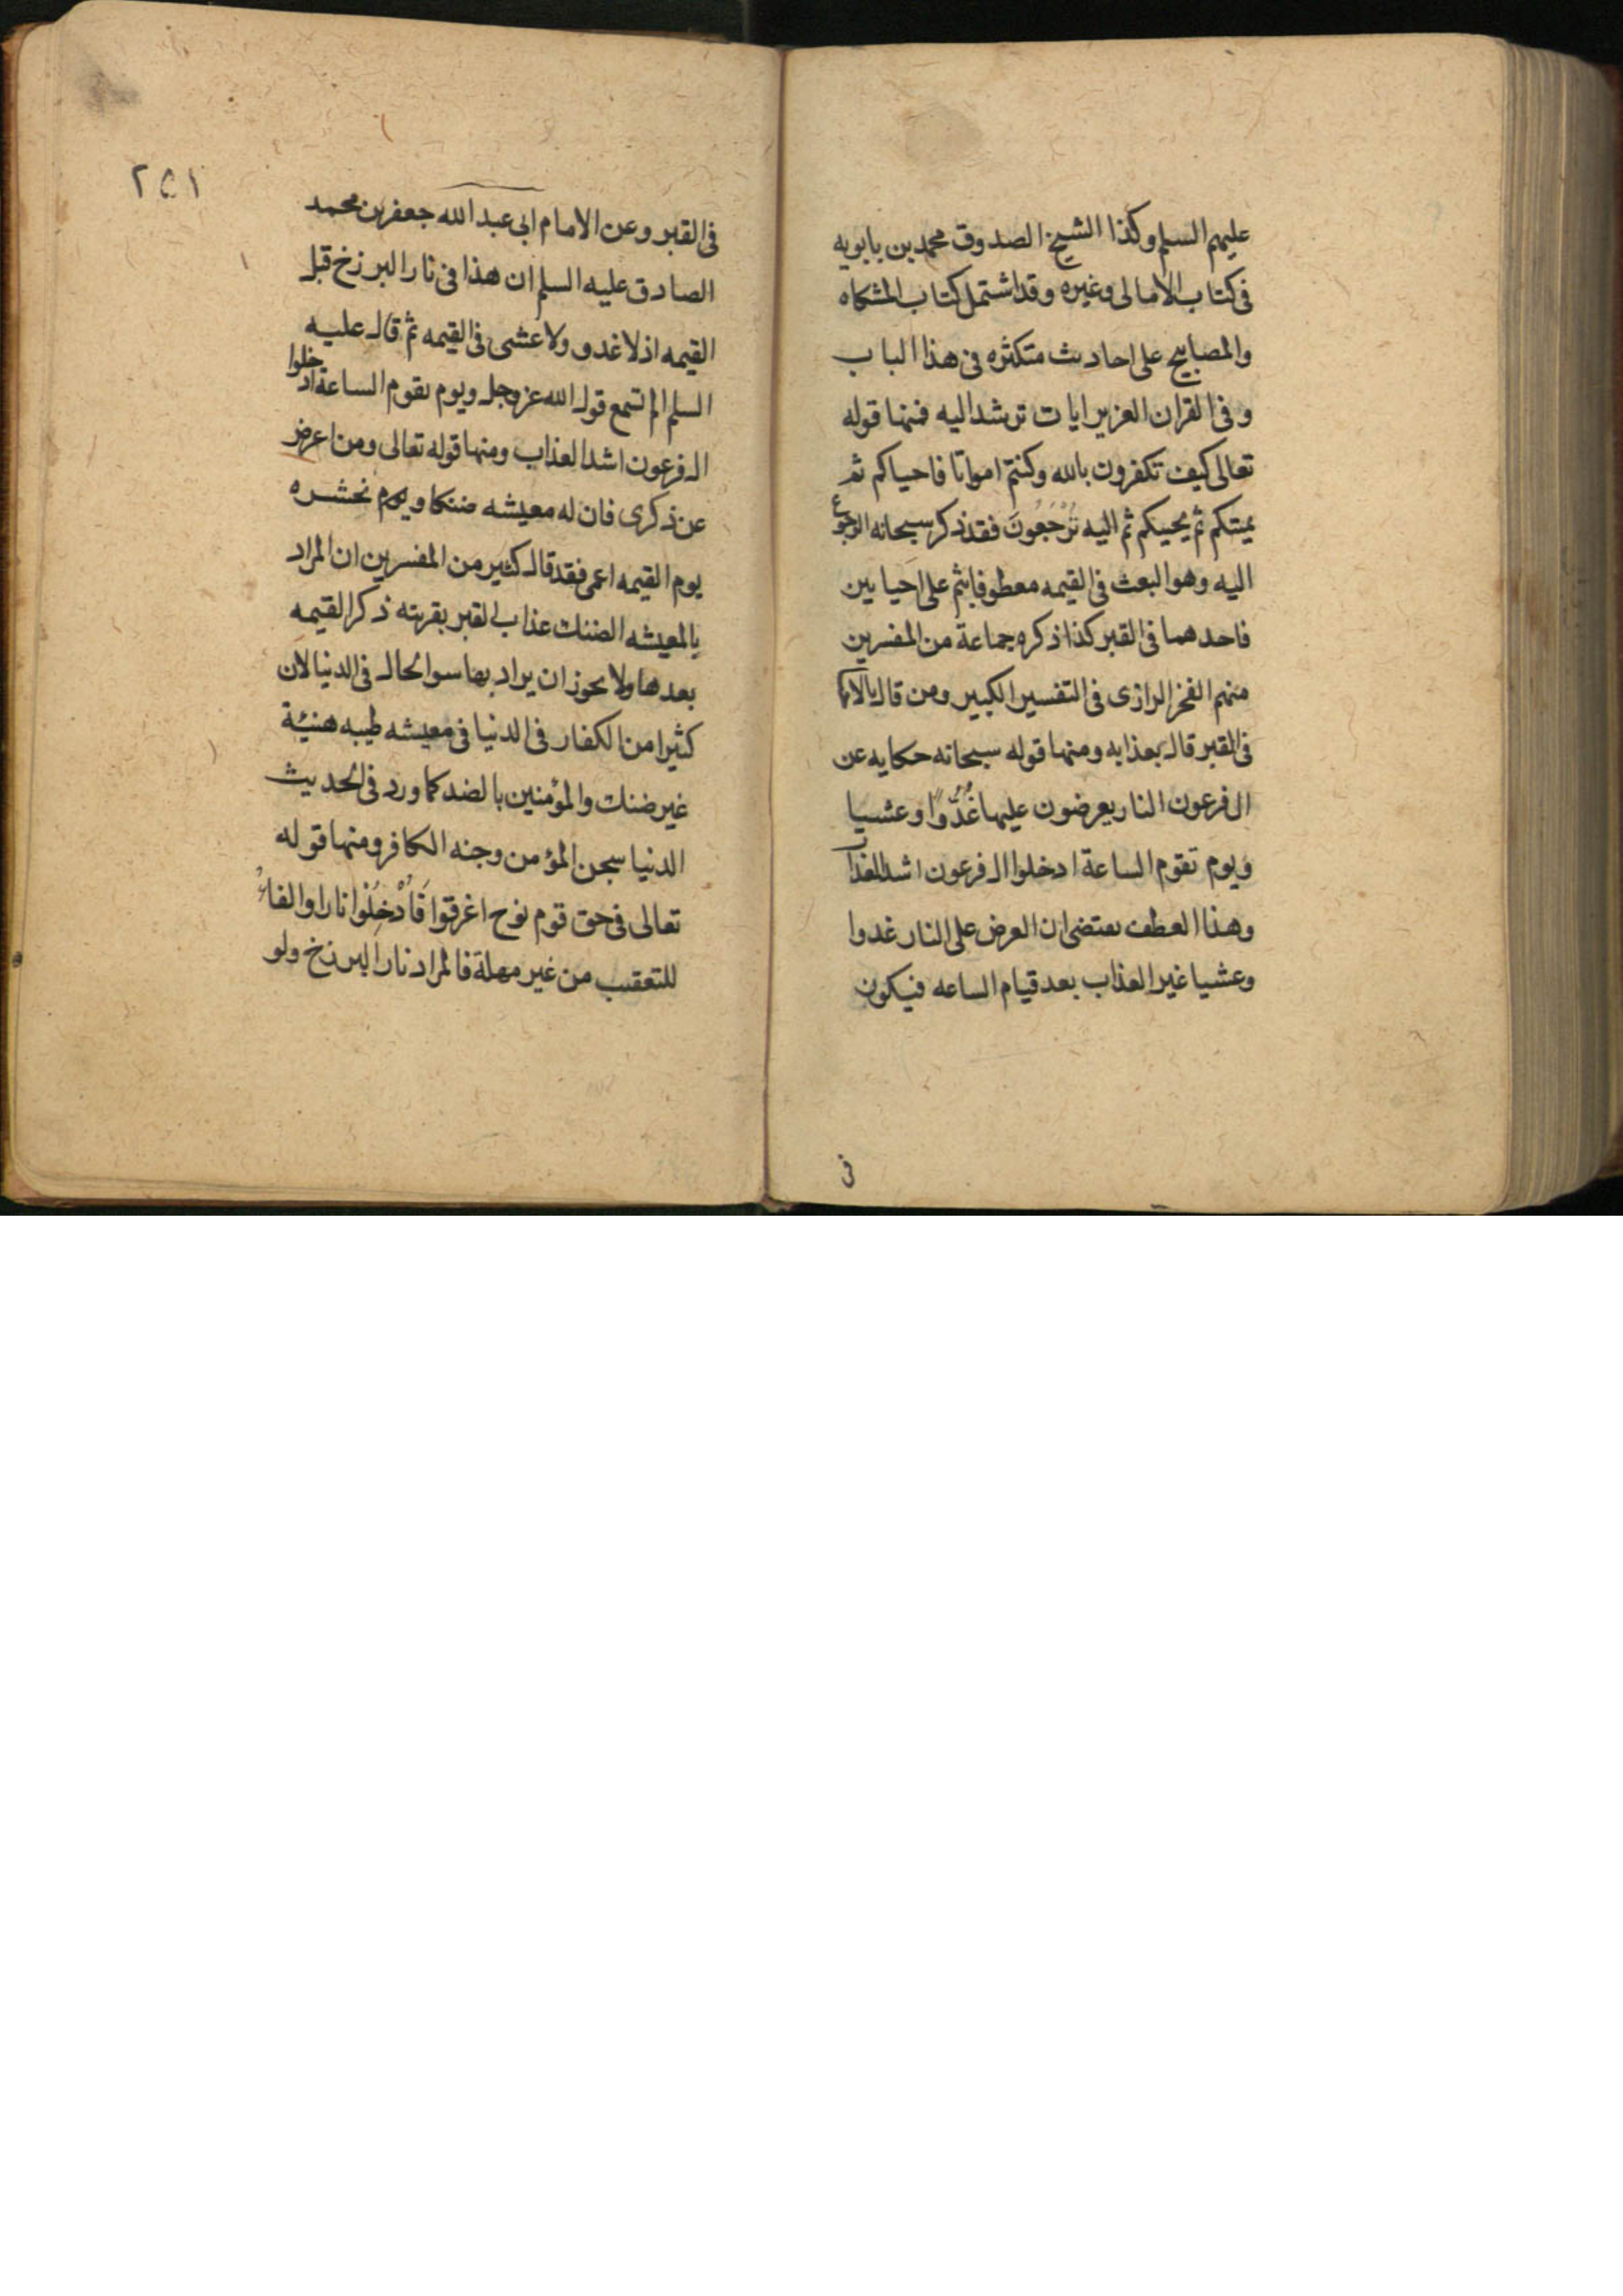 عليهم السلم وكذا الشيخ الصدوق محمد بن بابويه
فى كتاب الامالى وغيره وقد اشتمل كتاب المشكاه
والمصابيح على احاديث متكثره فى هذا الباب
وفى القران العزيز ايات ترشد اليه فمنها قوله
تعالى كيف تكفرون بالله وكنتم امواتا فاحياكم ثم
يميتكم ثم يحييكم ثم اليه تُرْجَعُونَ فقد ذكر سبحانه الرجوع
اليه وهو البعث فى القيمه معطوفا بثم على احيايين
فاحدهما فى القبر كذا ذكره جماعة من المفسرين
منهم الفخر الرازى فى التفسير الكبير ومن قال بالاحيا
فى القبر قال بعذابه ومنها قوله سبحانه حكايه عن
ال فرعون النار يعرضون عليها غُدُّوًا وعشيا
ويوم تقوم الساعة ادخلوا ال فرعون اشد العذاب
وهذا العطف يقتضى ان العرض على النار غدوا
وعشيا غير العذاب بعد قيام الساعه فيكون
فى
٢٥١
فى القبر وعن الامام ابى عبد الله جعفر بن محمد
الصادق عليه السلم ان هذا فى نار البرزخ قبل
القيمه اذ لا غدو ولا عشى فى القيمه ثم قال عليه
السلم الم تسمع قول الله عز وجل ويوم تقوم الساعة ادخلوا
ال فرعون اشد العذاب ومنها قوله تعالى ومن اعرض
عن ذكرى فان له معيشه ضنكا ويوم نحشره
يوم القيمه اعمى فقد قال كثير من المفسرين ان المراد
بالمعيشه الضنك عذاب القبر بقرينه ذكر القيمه
بعدها ولا يجوز ان يراد بها سوا الحال فى الدنيا لان
كثيرا من الكفار فى الدنيا فى معيشه طيبه هنيئة
غير ضنك والمؤمنين بالضد كما ورد فى الحديث
الدنيا سجن المؤمن وجنه الكافر ومنها قوله
تعالى فى حق قوم نوح اغرقوا فَاُدْخِلُوا نارا والفاءُ
للتعقيب من غير مهلة فالمراد نار البرزخ ولو